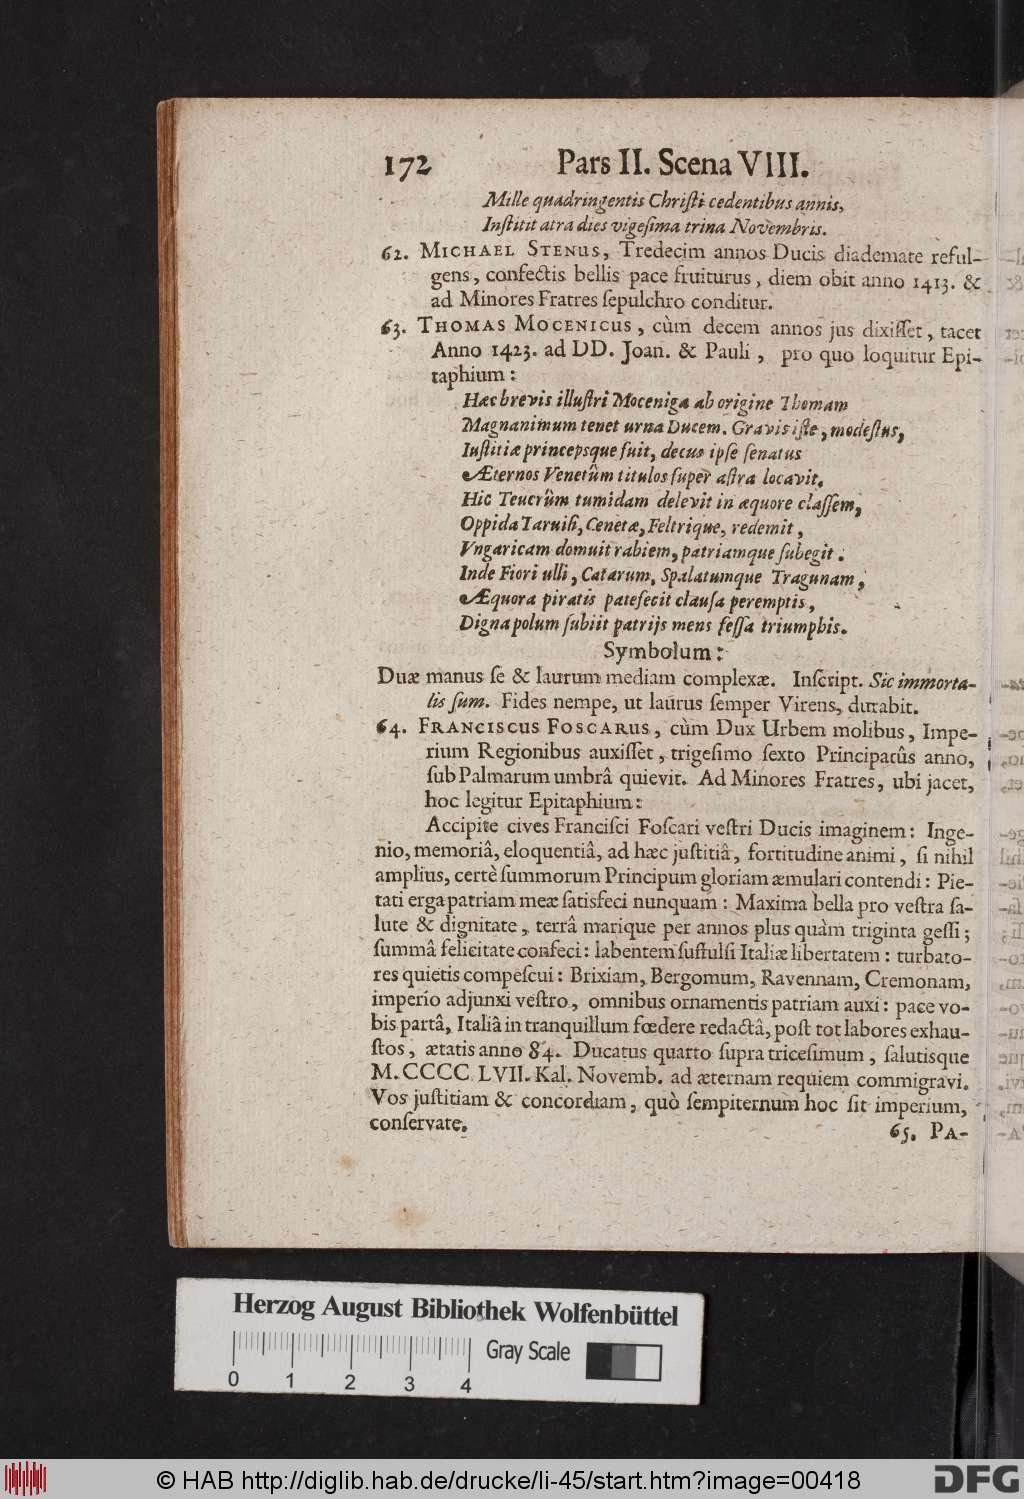 172 Pars II. Scena VIII.
Mille quadringentis Christi cedentibus annis,
Institit atra dies vigesima trina Novembris.
62. MICHAEL STENUS, Tredecim annos Ducis diademate reful-
gens, confectis bellis pace fruiturus, diem obit anno 1413. &
ad Minores Fratres sepulchro conditur.
63. THOMAS MOCENICUS, cùm decem annos jus dixisset, tacet
Anno 1423. ad DD. Joan. & Pauli, pro quo loquitur Epi-
taphium:
Hæc brevis illustri Moceniga ab origine Thomam
Magnanimum tenet urna Ducem. Gravis iste, modestus,
Iustitiæ princepsque fuit, decus ipse senatus
Æternos Venetûm titulos super astra locavit.
Hic Teucrûm tumidam delevit in æquore classem,
Oppida Taruisi, Cenetæ, Feltrique, redemit,
Vngaricam domuit rabiem, patriamque subegit.
Inde Fiori ulli, Catarum, Spalatumque Tragunam,
Æquora piratis patefecit clausa peremptis,
Digna polum subiit patrijs mens fessa triumphis.
Symbolum:
Duæ manus se & laurum mediam complexæ. Inscript. Sic immorta-
lis sum. Fides nempe, ut laurus semper Virens, durabit.
64. FRANCISCUS FOSCARUS, cùm Dux Urbem molibus, Impe-
rium Regionibus auxisset, trigesimo sexto Principatûs anno,
sub Palmarum umbrâ quievit. Ad Minores Fratres, ubi jacet,
hoc legitur Epitaphium:
Accipite cives Francisci Foscari vestri Ducis imaginem: Inge-
nio, memoriâ, eloquentiâ, ad hæc justitiâ, fortitudine animi, si nihil
amplius, certè summorum Principum gloriam æmulari contendi: Pie-
tati erga patriam meæ satisfeci nunquam: Maxima bella pro vestra sa-
lute & dignitate, terrâ marique per annos plus quàm triginta gessi;
summâ felicitate confeci: labentem suffulsi Italiæ libertatem: turbato-
res quietis compescui: Brixiam, Bergomum, Ravennam, Cremonam,
imperio adjunxi vestro, omnibus ornamentis patriam auxi: pace vo-
bis partâ, Italiâ in tranquillum fœdere redactâ, post tot labores exhau-
stos, ætatis anno 84. Ducatus quarto supra tricesimum, salutisque
M.CCCC LVII. Kal. Novemb. ad æternam requiem commigravi.
Vos justitiam & concordiam, quò sempiternum hoc sit imperium,
conservate.
65. PA-
Herzog August Bibliothek Wolfenbüttel
Gray Scale
0 1 2 3 4
© HAB http://diglib.hab.de/drucke/li-45/start.htm?image=00418
DFG